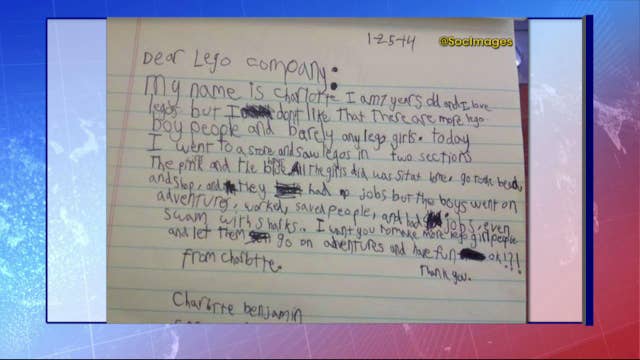 1-25-14
@SocImages
Dear Lego company:
My name is Charlotte I am 7 years old and I love
legos but I dont like that there are more lego
boy people and barely any lego girls. today
I went to a store and saw legos in two sections
the pink and the blue. All the girls did was sit at home, go to the beach,
and shop, and they had no jobs but the boys went on
adventures, worked, saved people, and had jobs, even
swam with sharks. I want you to make more lego girl people
and let them go on adventures and have fun ok!?!
from charlotte.
Thank you.
Charlotte benjamin